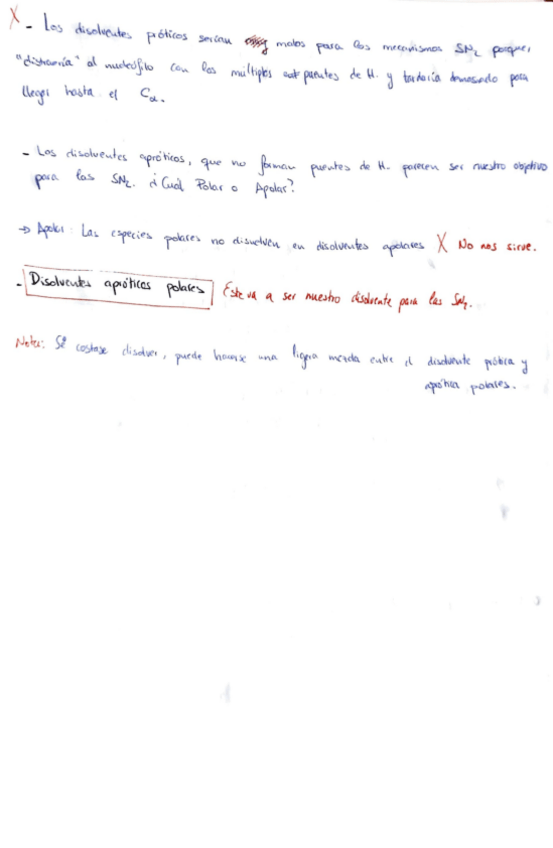 X - Los disolventes próticos serían malos para los mecanismos SN2 porque,
"distraería" al nucleófilo con los múltiples puentes de H. y tardaría demasiado para
llegar hasta el Cα.
- Los disolventes apróticos, que no forman puentes de H. parecen ser nuestro objetivo
para las SN2. ¿Cual Polar o Apolar?
→ Apolar: Las especies polares no disuelven en disolventes apolares X No nos sirve.
- Disolventes apróticos polares Este va a ser nuestro disolvente para las SN2.
Nota: Si costase disolver, puede hacerse una ligera mezcla entre el disolvente prótico y
aprótico polares.